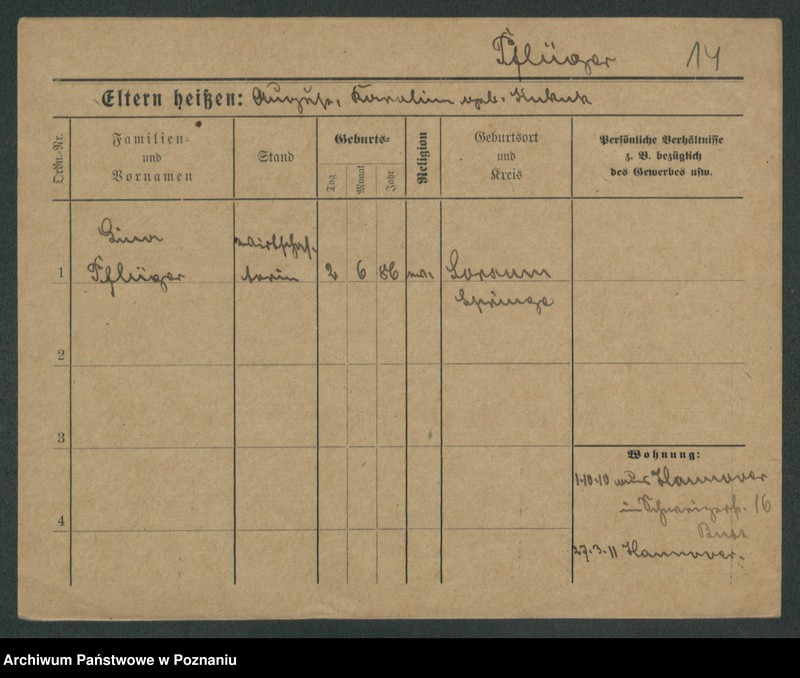 Pflüger 14
Eltern heißen: August, Karoline geb. Kukuk
Ordn.-Nr.
Familien-
und
Vornamen
Stand
Geburts-
Tag
Monat
Jahr
Religion
Geburtsort
und
Kreis
Persönliche Verhältnisse
z. B. bezüglich
des Gewerbes usw.
Wirtschaf-
1 Pflüger terin 2 6 86 ev. Dorsum
Springe
2
3
Wohnung:
1.10.10 aus Hannover
in 16
4
27.3.11 Hannover.
Archiwum Państwowe w Poznaniu